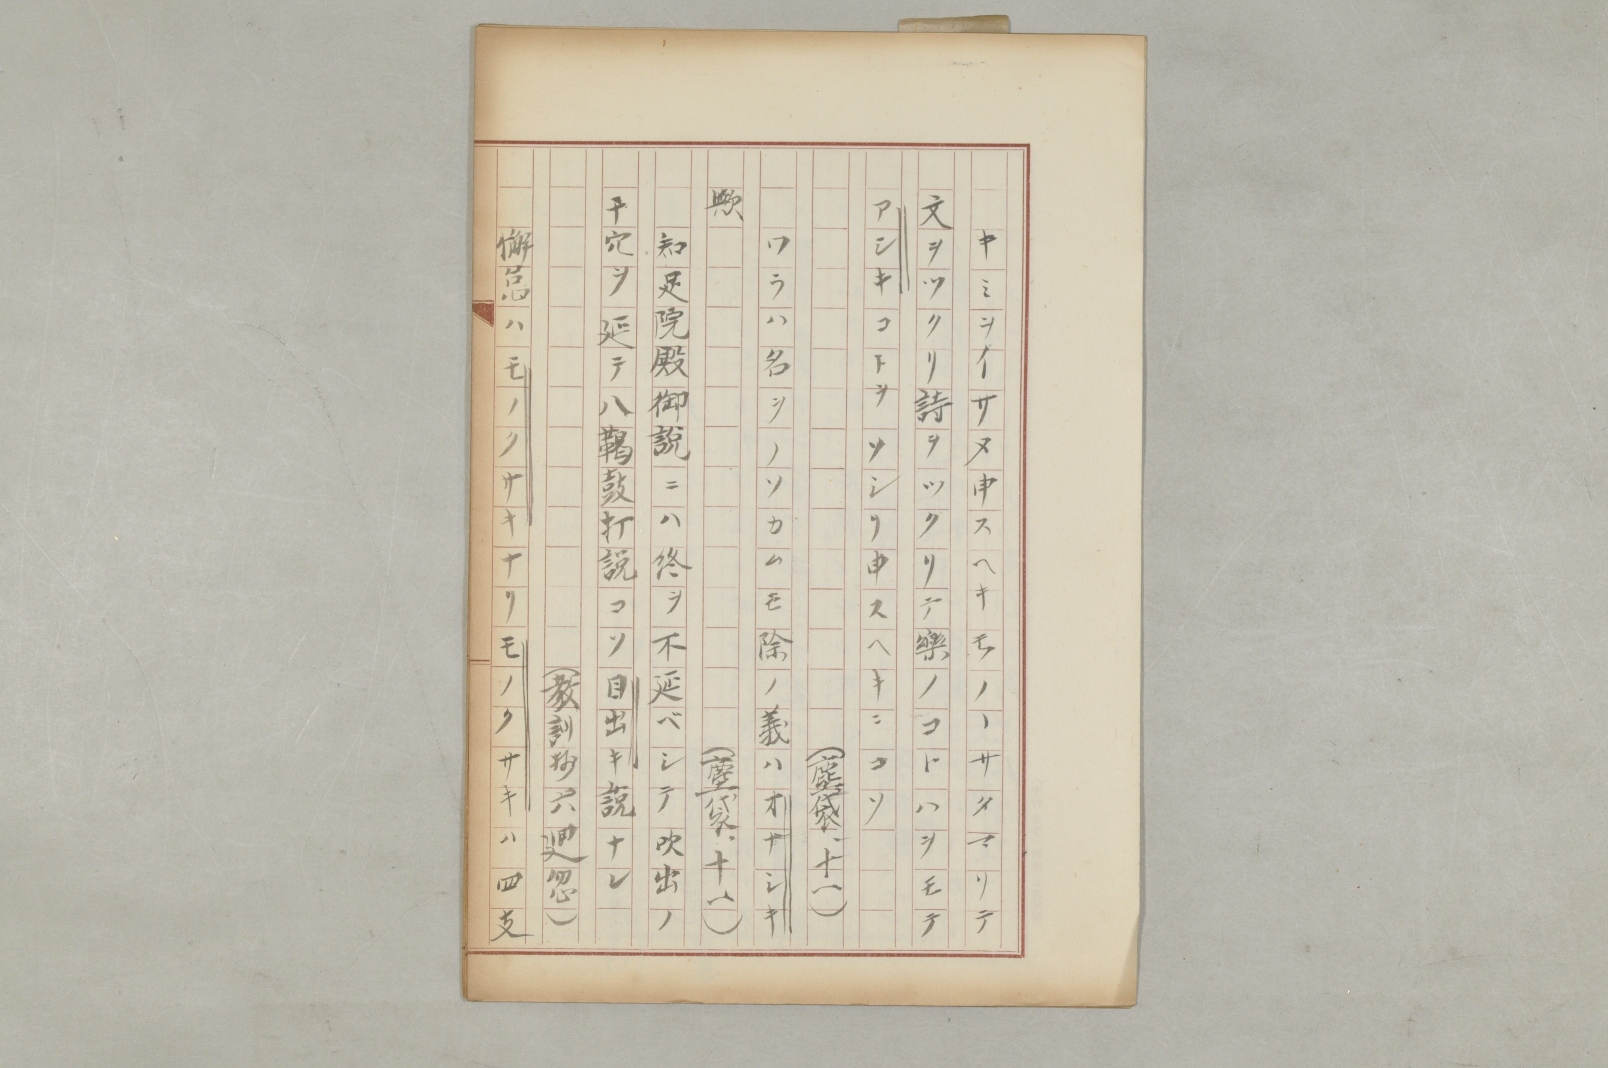 キミヲイサメ申スヘキモノヽサタマリテ
文ヲツクリ詩ヲツクリテ樂ノコトハヲモテ
アシキコトヲソシリ申スヘキニコソ
(塵袋、十一)
ワラハ名ヲノソカムモ除ノ義ハオサシキ
歟
(塵袋、十一)
知足院殿御説ニハ終ヲ不延ベシテ吹出ノ
干穴ヲ延テ八鞨鼓打説コソ目出キ説ナレ
(教訓抄六 廻忽)
懈怠ハモノクサキナリモノクサキハ四支